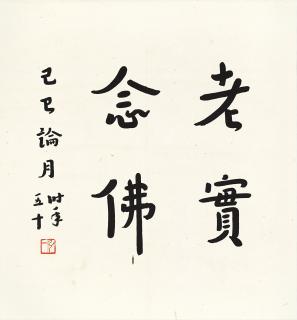 老實
念佛
己巳論月
时年
五十